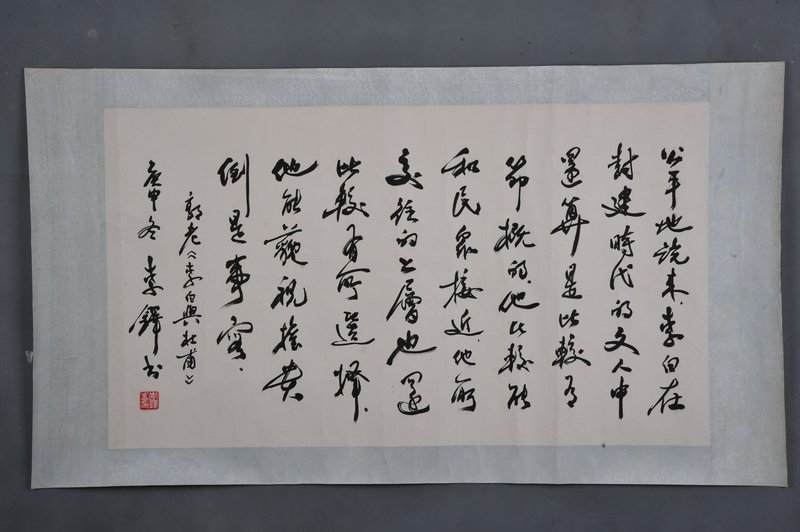 公平地说来，李白在
封建時代的文人中
還算是比較有
節概的，他比較能
和民众接近，他所
交往的上層也還
比較有所選擇，
他能藐視權貴
倒是事實、
郭老《李白與杜甫》
庚申冬 李鐸书